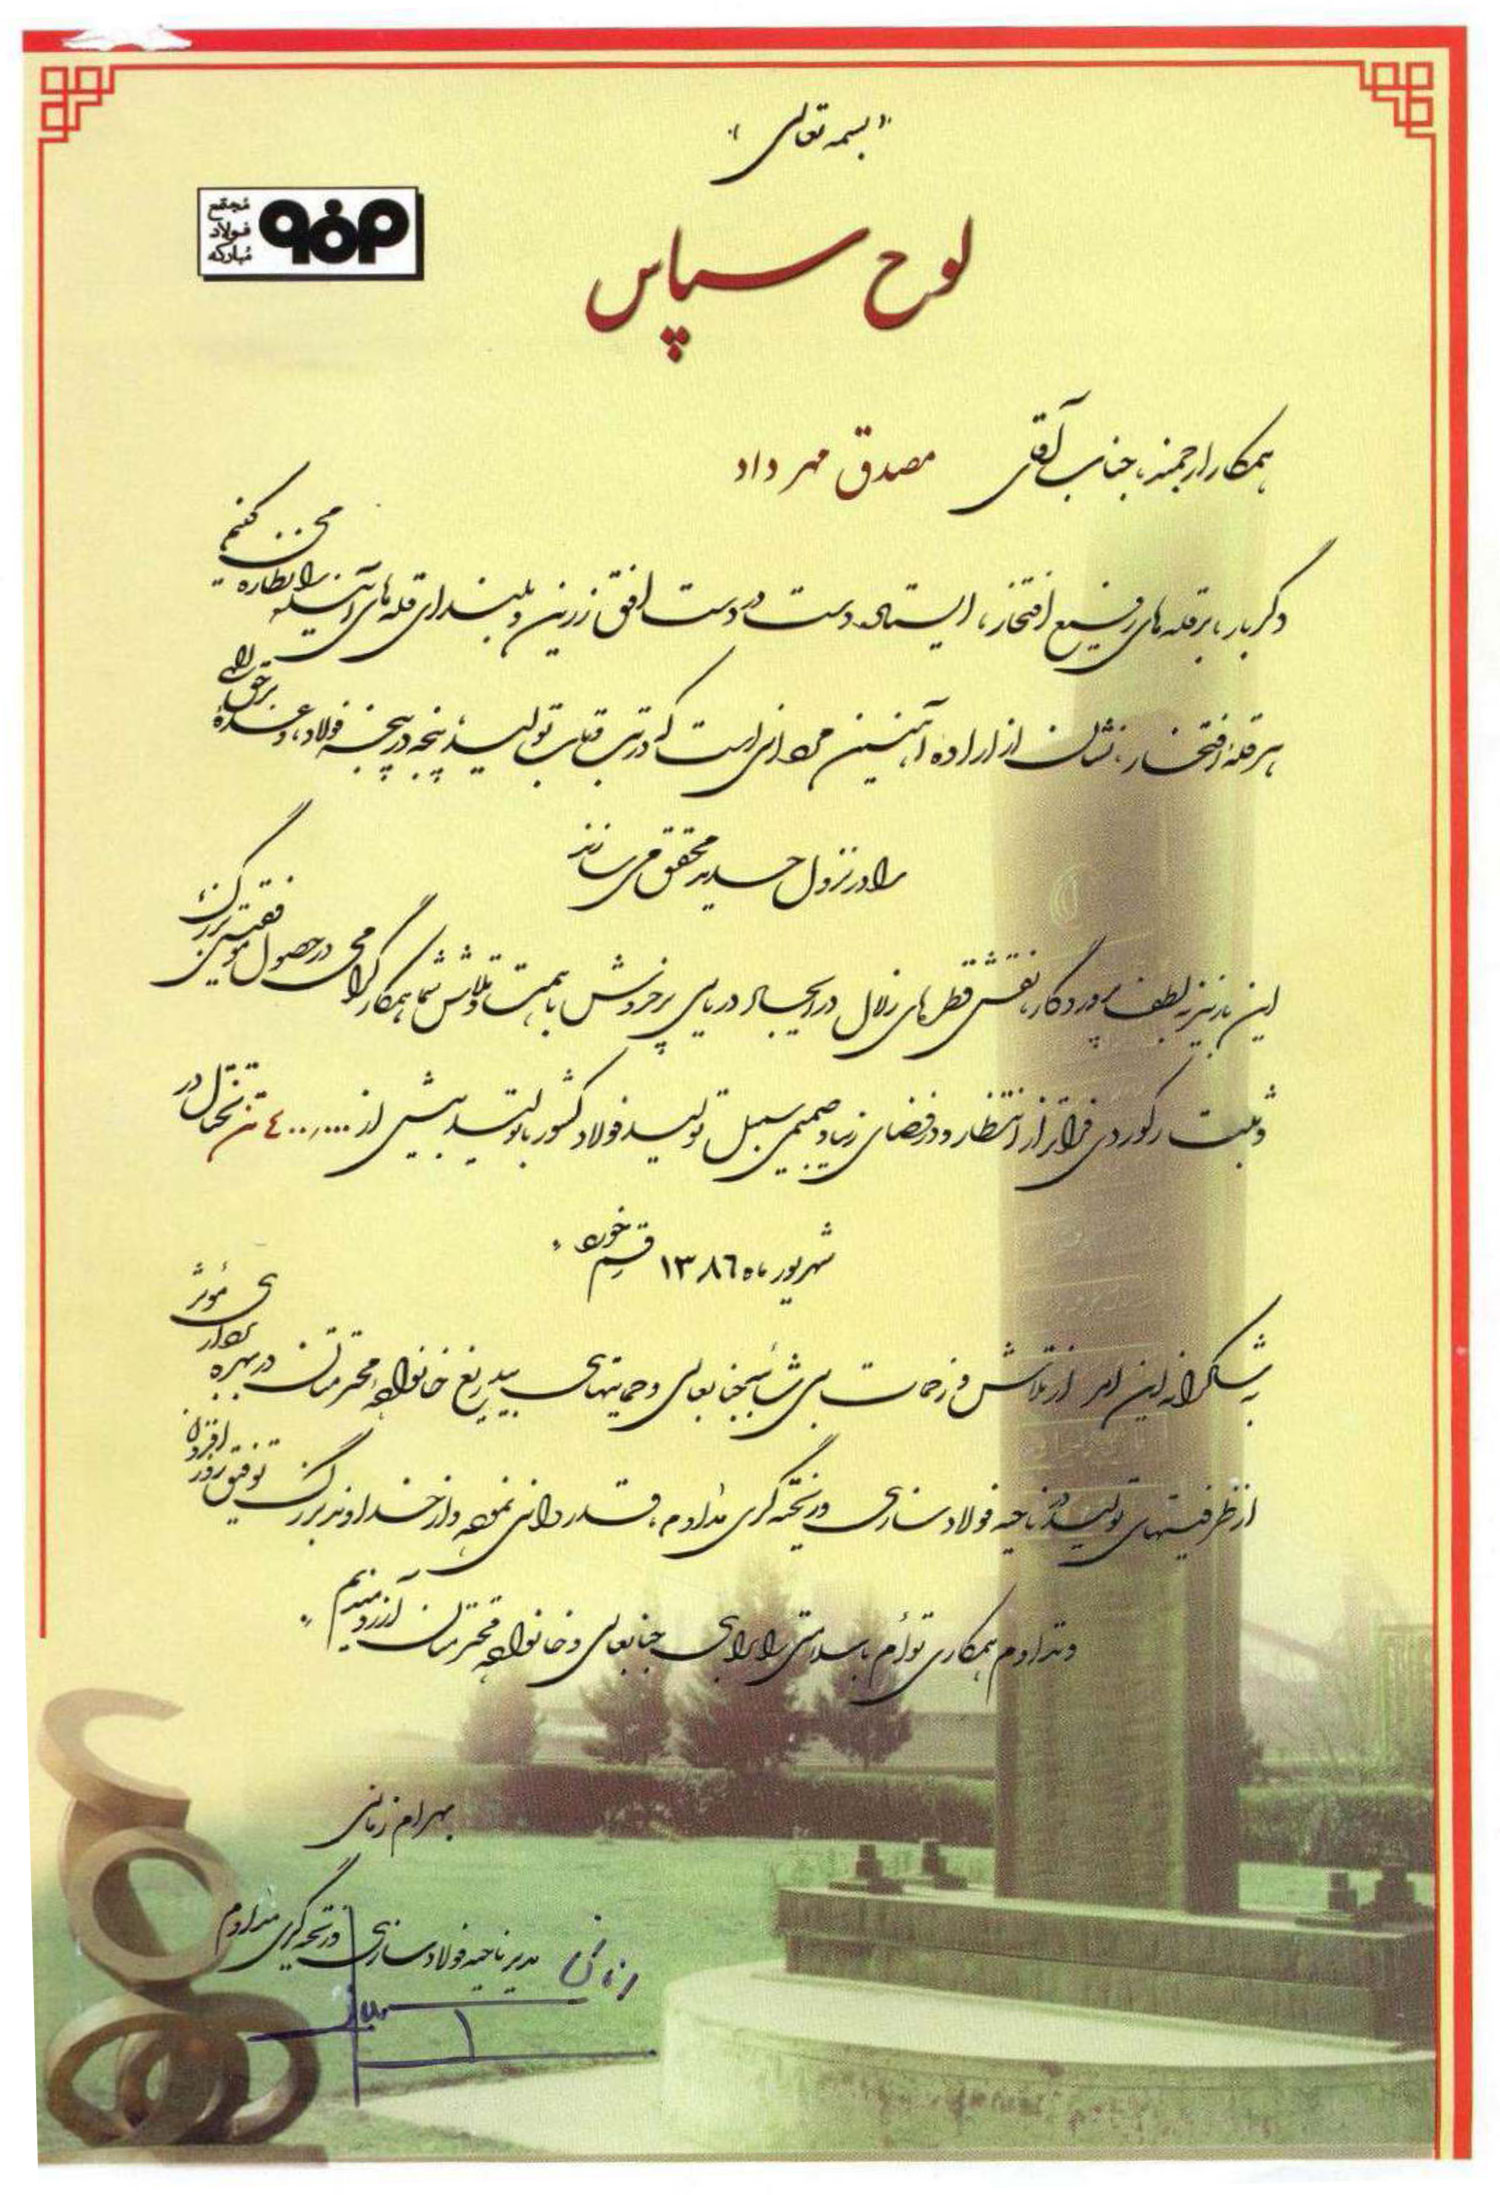 «بسمه تعالی»
مجتمع
فولاد
مبارکه
لوح سپاس
همکار ارجمند، جناب آقای مصدق مهرداد
دگر بار، بر قله های رفیع افتخار، ایستاده دست در دست افق زرین و بلندای قله های آتیه را نظاره می کنیم
هر قله افتخار، نشان از اراده آهنین مردانی است که در تب و تاب تولید، پنجه در پنجه فولاد، وعده بر حق الهی
را در نزول حدید محقق می سازند
این بار نیز به لطف پروردگار، نقش قطره های زلال در ایجاد دریای پرخروش با همت و تلاش شما همکار گرامی در حصول موفقیتی بزرگ،
و ثبت رکوردی فراتر از انتظار و در فضای زیبا و صمیمی سمبل تولید فولاد کشور با تولید بیش از ۴۰۰,۰۰۰ تن تختال در
شهریور ماه ۱۳۸۶ رقم خورد.
به شکرانه این امر از تلاش و زحمات بی شائبه جنابعالی و حمایتهای بیدریغ خانواده محترمتان در بهره برداری موثر
از ظرفیتهای تولید در ناحیه فولادسازی و ریخته گری مداوم، قدردانی نموده و از خداوند بزرگ توفیق روز افزون
و تداوم همکاری توأم با سلامتی را برای جنابعالی و خانواده محترمتان آرزومندیم.
بهرام زمانی
مدیر ناحیه فولادسازی و ریخته گری مداوم